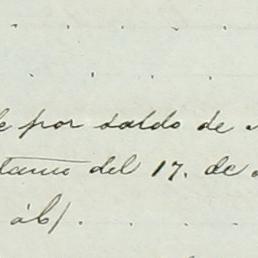 por saldo de
del 17. de
áb/.